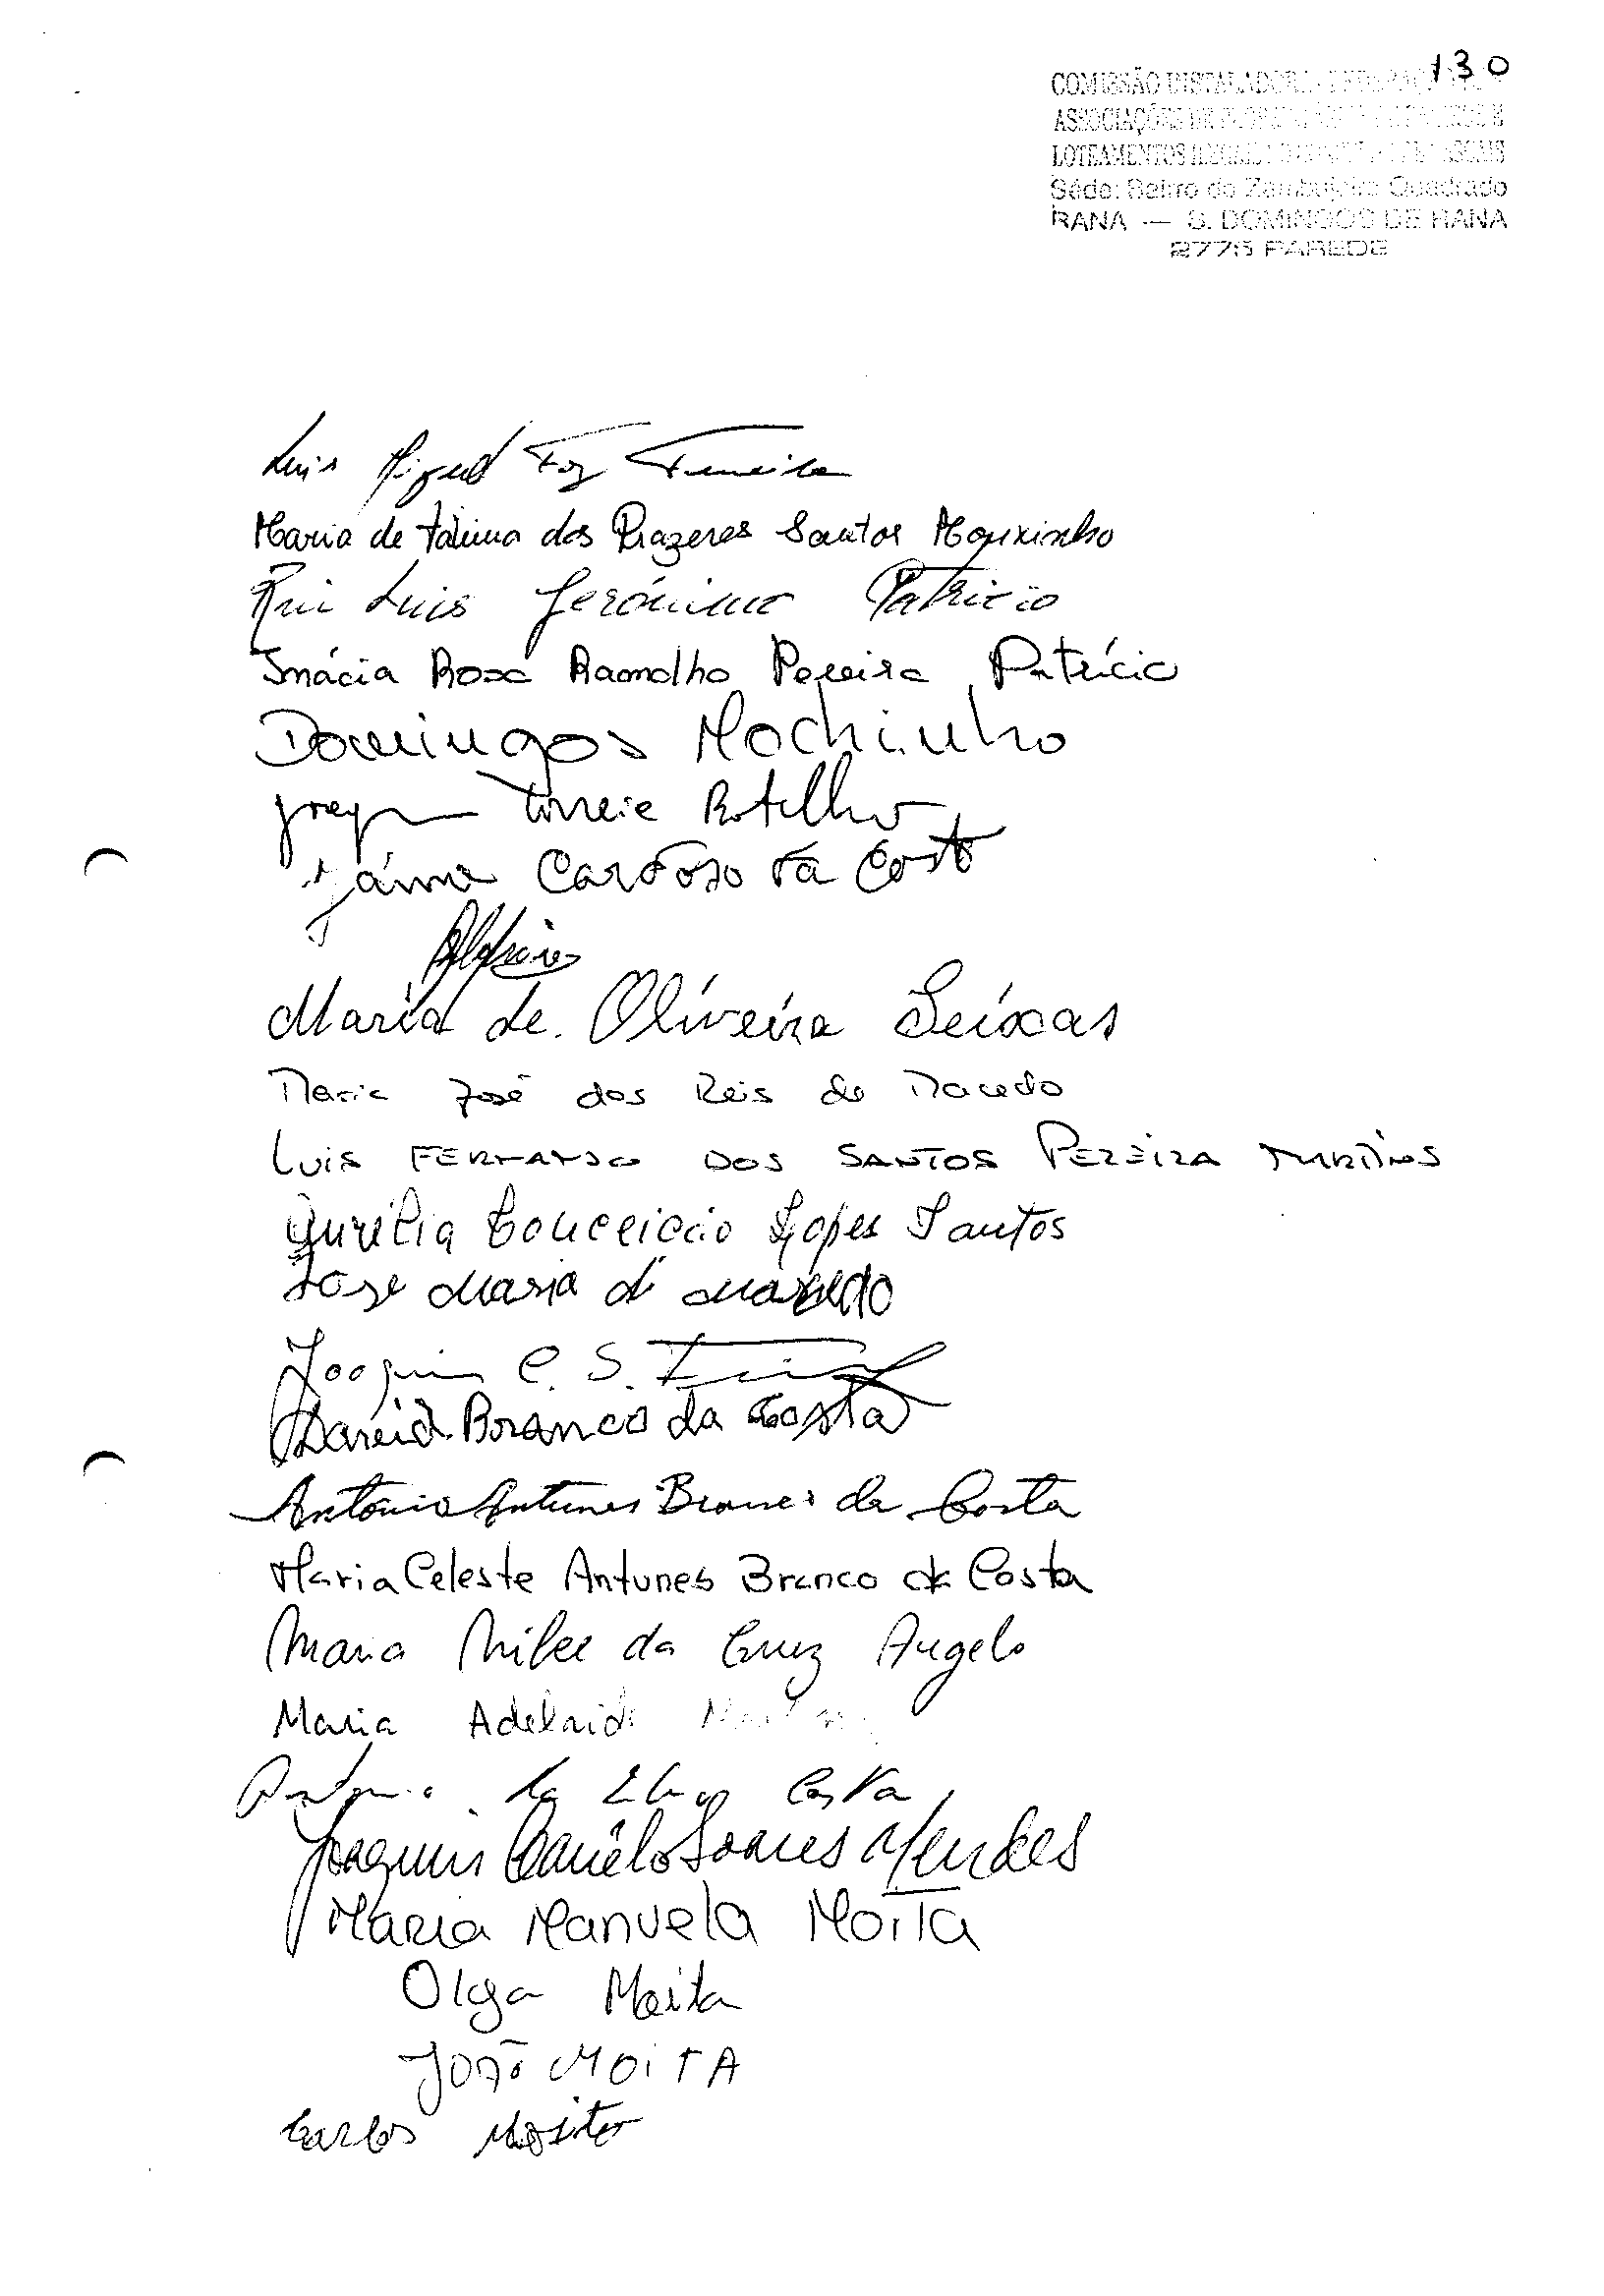 130
COMISSÃO INSTALADORA
ASSOCIAÇÕES DE
LOTEAMENTOS ILEGAIS
Séde: Bairro do Zambujeiro Quadrado
RANA — S. DOMINGOS DE RANA
2775 PAREDE
Luis Miguel Foz Ferreira
Maria de Fátima dos Prazeres Santos Mouxinho
Rui Luis Jerónimo Patricio
Inácia Rosa Ramalho Pereira Patrício
Domingos Mochinho
Correia Botelho
Cardoso da Costa
Maria de Oliveira Seixas
Maria José dos Reis de Macedo
Luis FERNANDO DOS SANTOS PEREIRA MARTINS
Aurélia Conceicão Lopes Santos
José Maria de Macedo
Joaquim C. S.
Branco da Costa
António Antunes Branco da Costa
Maria Celeste Antunes Branco da Costa
Maria da Cruz Angelo
Maria Adelaide
Costa
Joaquim Camélo Soares Mendes
Maria Manuela Moita
Olga Moita
João MOITA
Carlos Moita